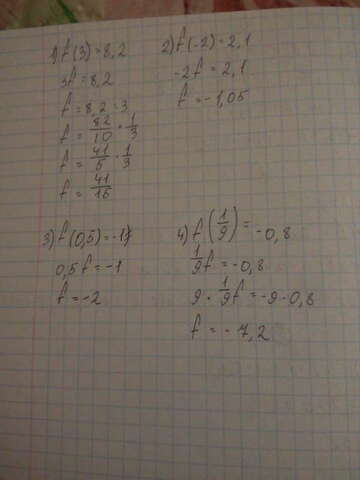 1) f(3) = 8,2
3f = 8,2
f = 8,2 : 3
f = 82/10 · 1/3
f = 41/5 · 1/3
f = 41/15
2) f(-2) = 2,1
-2f = 2,1
f = -1,05
3) f(0,5) = -1
0,5f = -1
f = -2
4) f(1/9) = -0,8
1/9 f = -0,8
9 · 1/9 f = -9 · 0,8
f = -7,2